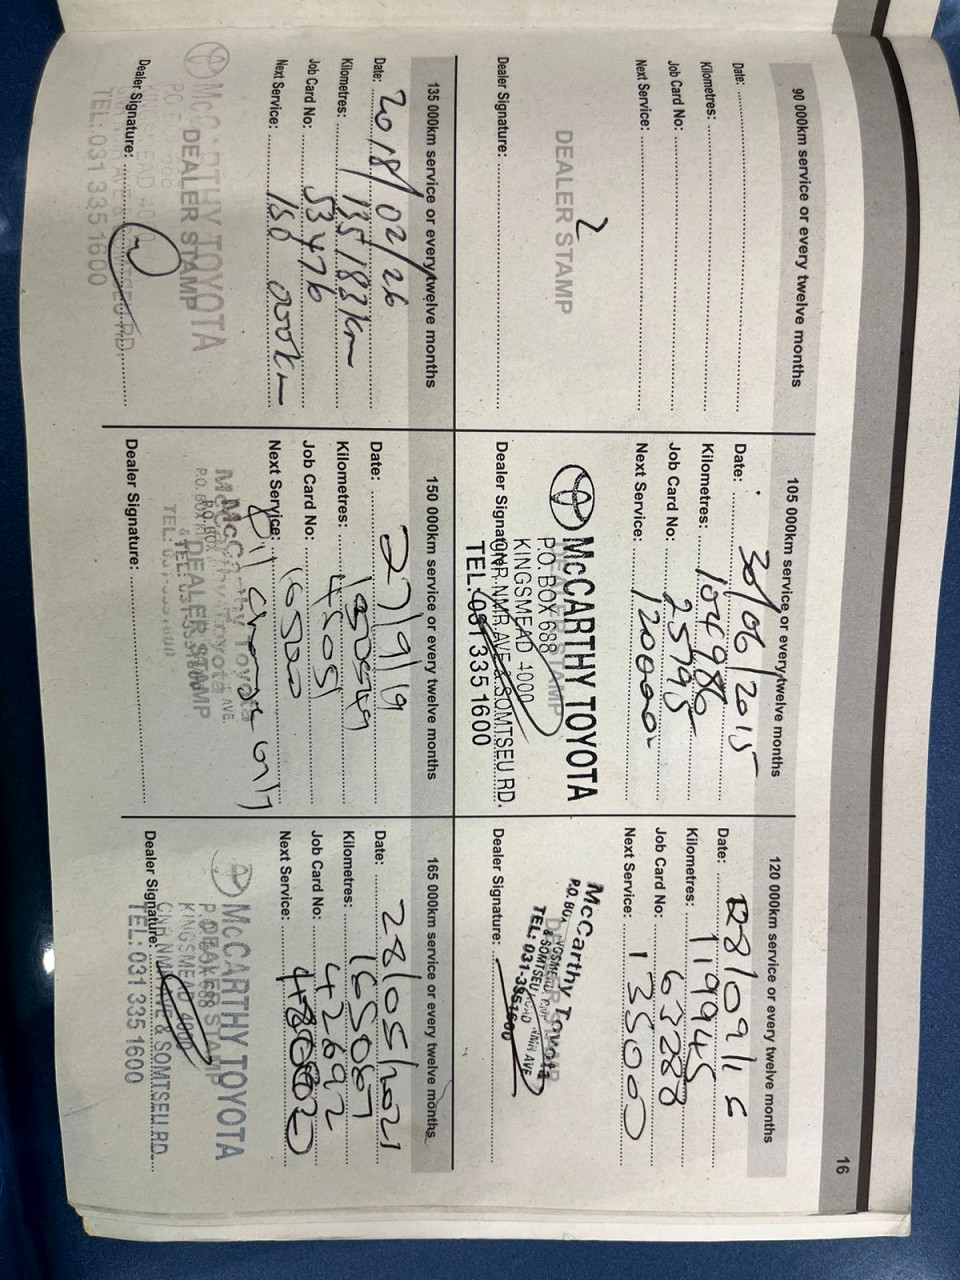 16
90 000km service or every twelve months
Date:
Kilometres:
Job Card No:
Next Service:
2
DEALER STAMP
Dealer Signature:
105 000km service or every twelve months
Date: 30/06/2015
Kilometres: 104986
Job Card No: 25795
Next Service: 120000
McCARTHY TOYOTA
DEALER STAMP
P.O. BOX 688
KINGSMEAD 4000
CNR.NMR AVE & SOMTSEU RD.
TEL: 031 335 1600
Dealer Signature:
120 000km service or every twelve months
Date: 28/09/16
Kilometres: 119945
Job Card No: 63288
Next Service: 135000
McCarthy Toyota
DEALER STAMP
P.O. BOX
& SOMTSEU ROAD
TEL: 031-3351600
Dealer Signature:
135 000km service or every twelve months
Date: 2018/02/26
Kilometres: 135183km
Job Card No: 53476
Next Service: 150 000km
McCARTHY TOYOTA
DEALER STAMP
KINGSMEAD 4000
TEL: 031 335 1600
Dealer Signature:
150 000km service or every twelve months
Date: 27/9/19
Kilometres:
Job Card No: 45051
Next Service: 165000
Oil Change only
McCarthy Toyota
DEALER STAMP
Dealer Signature:
165 000km service or every twelve months
Date: 28/05/2021
Kilometres: 165087
Job Card No: 42692
Next Service:
McCARTHY TOYOTA
DEALER STAMP
P.O. BOX 688
KINGSMEAD 4000
CNR NMR AVE & SOMTSEU RD.
TEL: 031 335 1600
Dealer Signature: